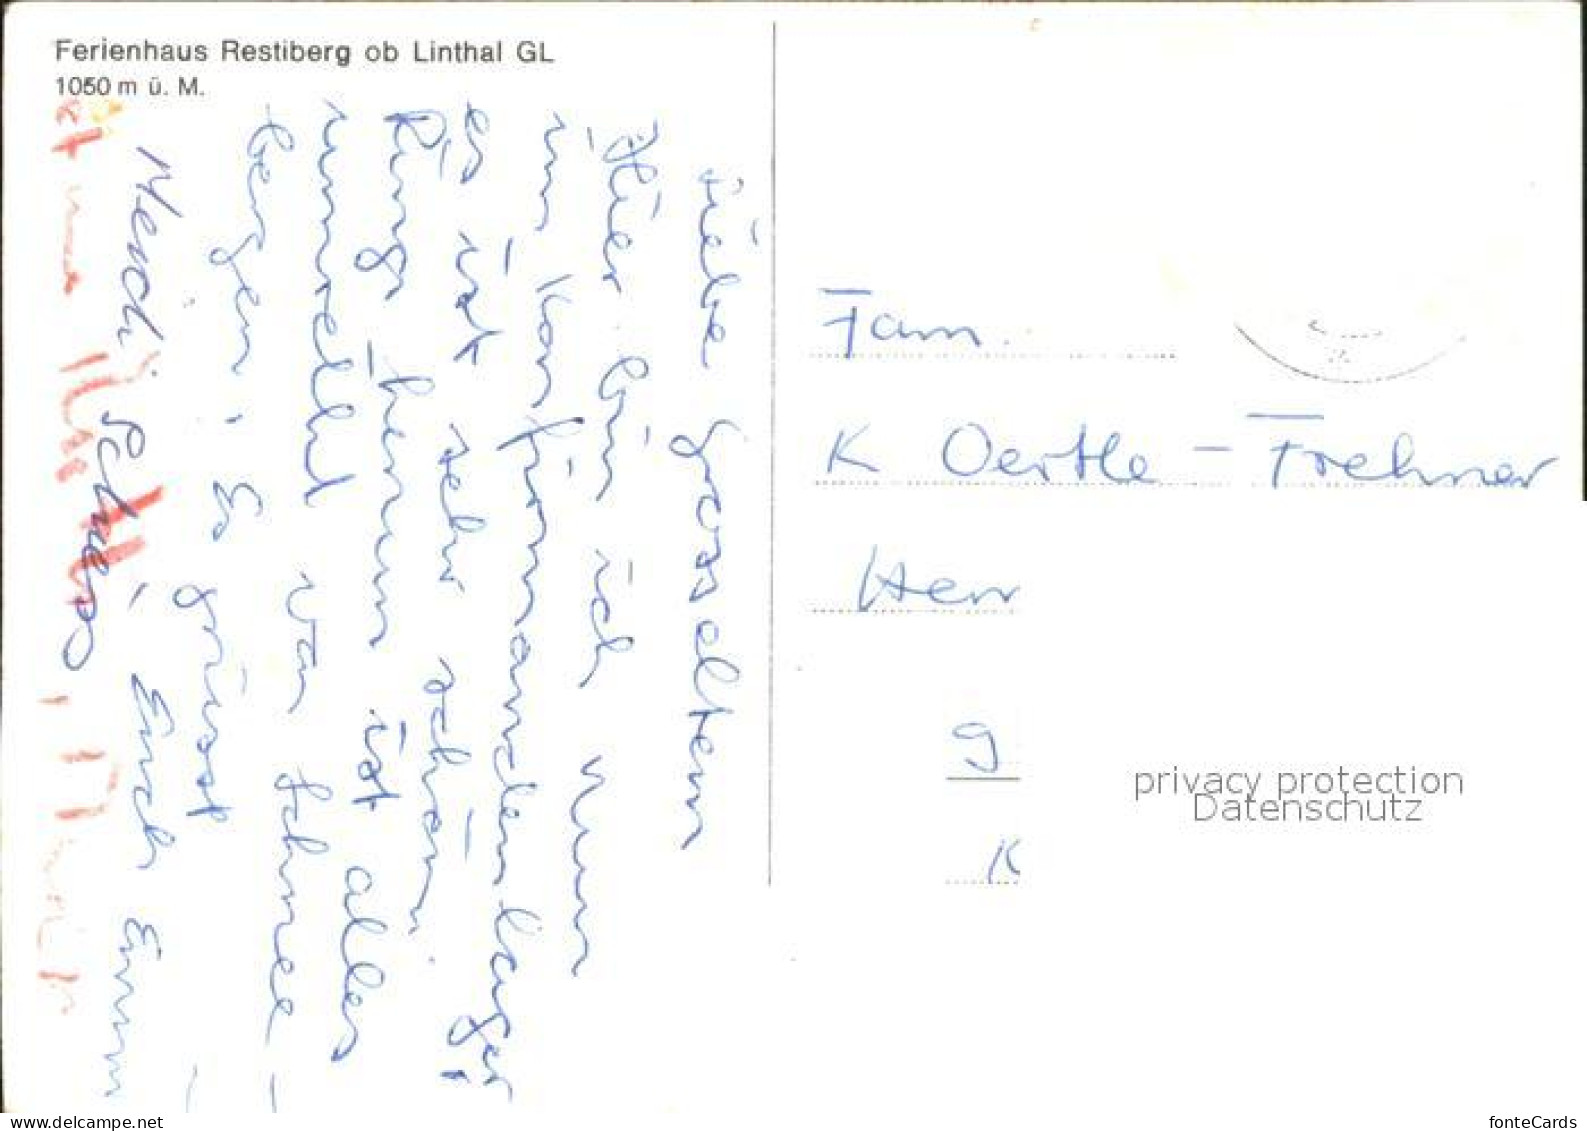 Ferienhaus Restiberg ob Linthal GL
1050 m ü. M.
Liebe Grosseltern
Hier bin ich nun
im Konfirmandenlager,
es ist sehr schön.
Rings herum ist alles
umstellt von Schnee-
bergen. Es grüsst
Euch Emmi
Fam.
K Oertle-Frehner
Herr
9
K
privacy protection
Datenschutz
delcampe.net
fonteCards